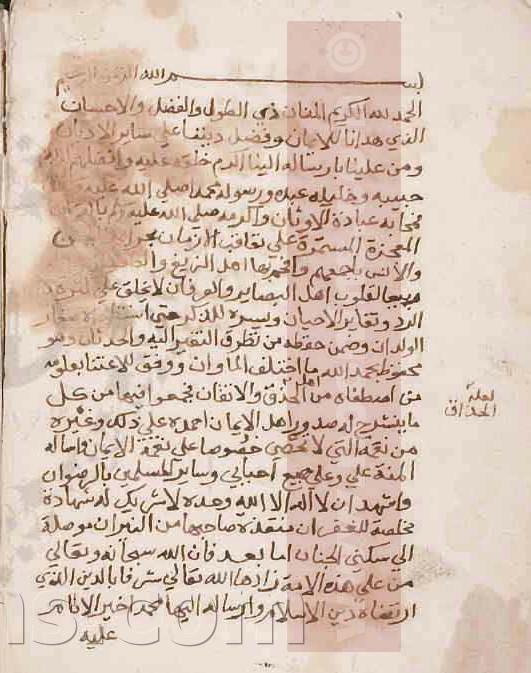 بسم الله الرحمن الرحيم
الحمد لله الكريم المنان ذي الطول والفضل والاحسان
الذي هدانا للايمان وفضل ديننا على ساير الاديان
ومن علينا بارساله الينا اكرم خلقه عليه وافضلهم لديه
حبيبه وخليله عبده ورسوله محمدا صلي الله عليه
فمحا به عبادة الاوثان واكرمه صلى الله عليه
المعجزة المستمرة على تعاقب الازمان
والانس باجمعهم وافحم بها اهل الزيغ
ربيعا لقلوب اهل البصاير والعرفان لا يخلق علي
الرد وتغاير الاحيان ويسره للذكر حتى استظهره صغار
الولدان وضمن حفظه من تطرق التغير اليه والحدثان وهو
محفوظ بحمد الله ما اختلف الملوان ووفق للاعتنا بعلومه
من اصطفاه من اهل الحذق والاتقان فجمعوا فيها من كل
ما ينشرح له صدور اهل الايمان احمده علي ذلك وغيره
من نعمه التي لا تحصى خصوصا على نعمة الايمان واساله
المنة علي وعلى جميع احبابي وساير المسلمين بالرضوان
واشهد ان لا اله الا الله وحده لا شريك له شهادة
مخلصة للغفران منقذة صاحبها من النيران موصلة
الي سكنى الجنان اما بعد فان الله سبحانه وتعالي
من على هذه الامة زادها الله تعالي شرفا بالدين الذي
ارتضاه دين الاسلام وارساله اليها محمد اخير الانام
عليه
لعله
الحذاق
ns.com